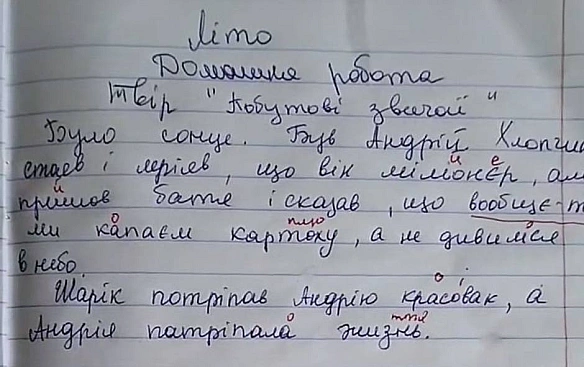 Літо
Домашня робота
Твір "Побутові звичаї"
Було сонце. Був Андрій Хлопчик
стаєв і мріяв, що він мілйонєр, ал
прийшов батя і сказав, що вообще-т
ми капаєм картоху, а не дивимся
в небо.
Шарік потріпав Андрію красовак, а
Андрія патріпала жизнь.